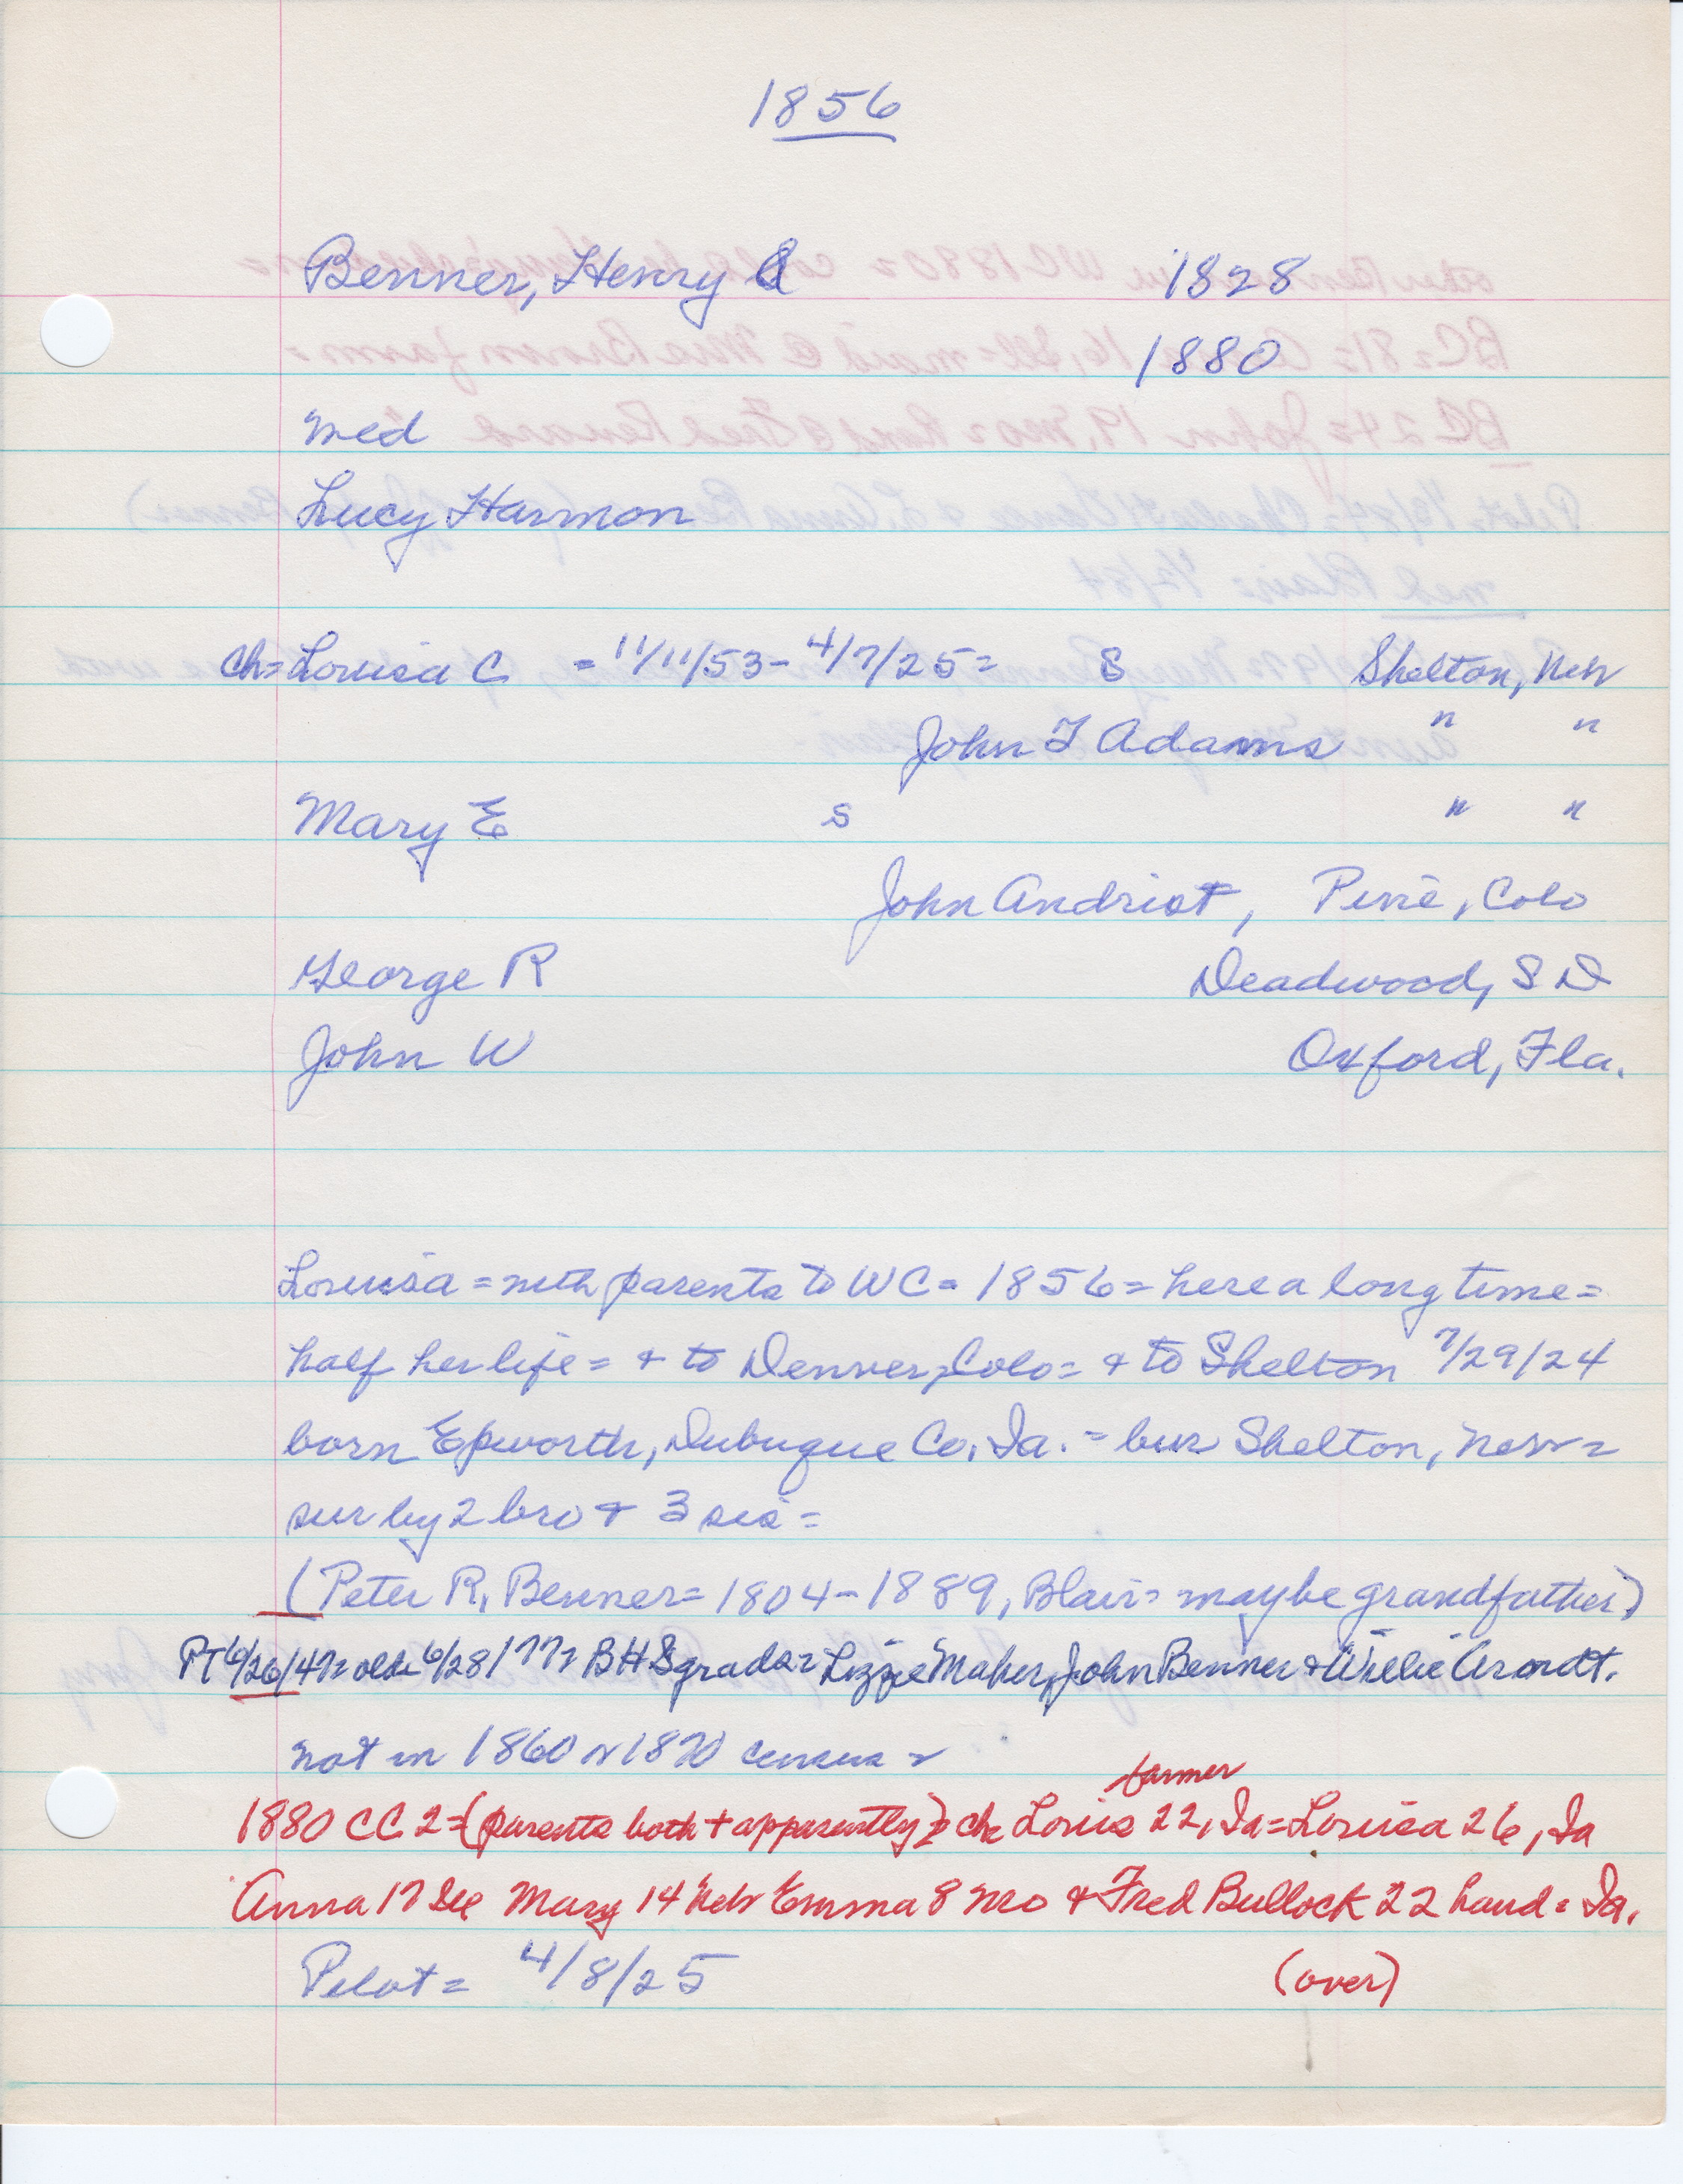 1856
Benner, Henry 1828
1880
med
Lucy Harmon
Ch= Louisa C = 11/11/53 - 4/7/25 = S Shelton, Neb
John F Adams " "
Mary E S " "
John Andrist, Pine, Colo
George R Deadwood, S D
John W Oxford, Fla.
Louisa = with parents to WC = 1856 = here a long time =
half her life = + to Denver, Colo = + to Shelton 7/29/24
born Epworth, Dubuque Co, Ia. = bur Shelton, Neb =
sur by 2 bro + 3 sis =
(Peter R, Benner = 1804 - 1889, Blair = maybe grandfather)
PT 6/26/47 = 6/28/77 = BHS grads = Lizzie Maher, John Benner + Willie Arndt.
not in 1860 or 1870 census =
farmer
1880 CC 2 = (parents both + apparently) = ch Louis 22, Ia = Louisa 26, Ia
Anna 17 Ill Mary 14 Neb Emma 8 Mo + Fred Bullock 22 hand = Ia.
Pilot = 4/8/25 (over)